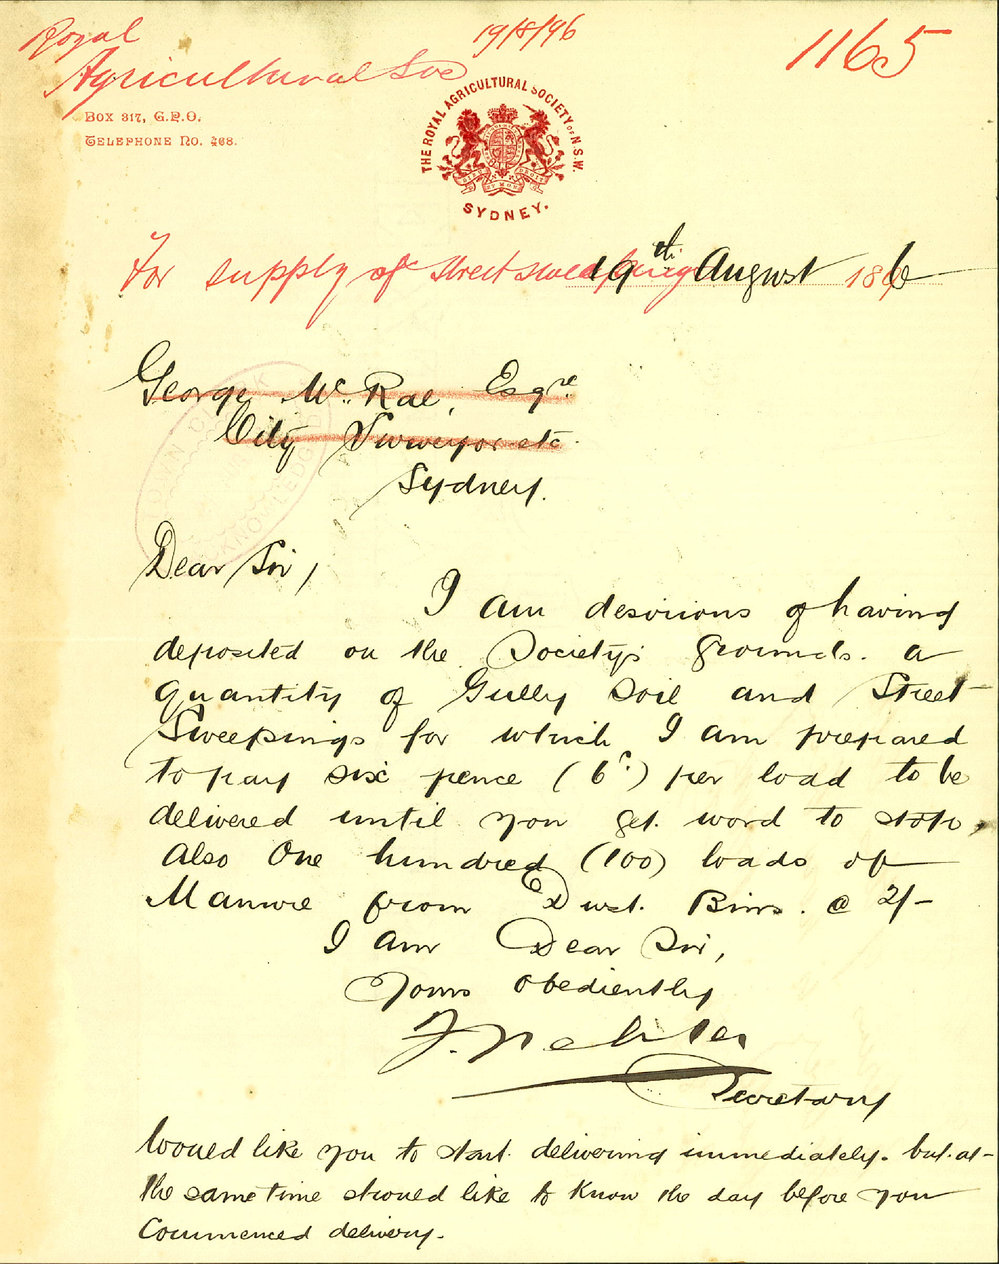 Royal
Agricultural Soc
19/8/96
1165
BOX 317, G.P.O.
TELEPHONE NO. 468.
THE ROYAL AGRICULTURAL SOCIETY OF N.S.W.
SYDNEY.
For supply of street sweepings
19th August 1896
George Mc. Rae, Esqre
City Surveyor etc.
Sydney.
Dear Sir,
I am desirious of having
deposited on the Society's grounds. a
quantity of Gully Soil and Street
Sweepings for which I am prepared
to pay six pence (6d.) per load to be
delivered until you get word to stop,
also One hundred (100) loads of
Manure from Dust. Bins. @ 2/-
I am Dear Sir,
Yours obediently
F. Webster
Secretary
Would like you to start delivering immediately. but at
the same time should like to know the day before you
Commenced delivery.